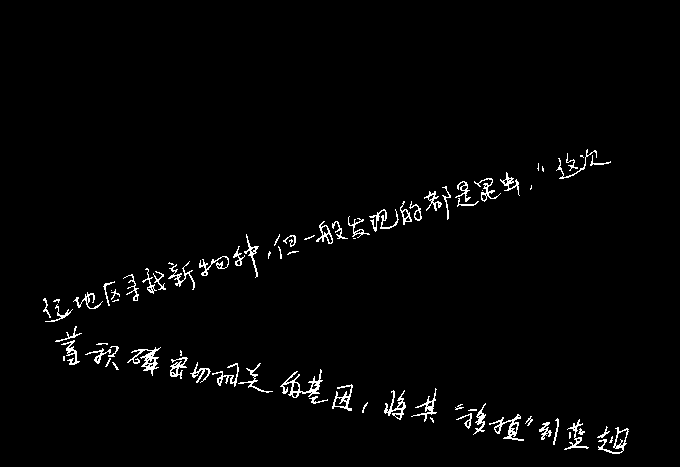 远地区寻找新物种,但一般发现的都是昆虫,“这次
蓄积磷密切相关的基因,将其“移植”到蓝翅